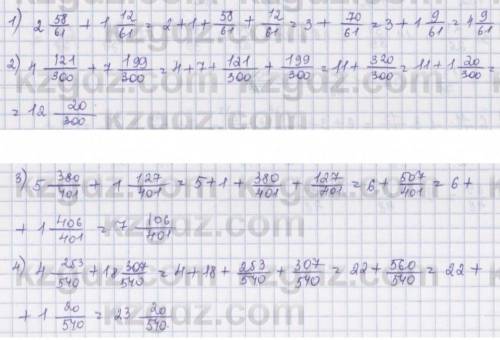 1) 2 58/61 + 1 12/61 = 2+1+ 58/61 + 12/61 = 3 + 70/61 = 3+1 9/61 = 4 9/61
2) 4 121/300 + 7 199/300 = 4+7+ 121/300 + 199/300 = 11+ 320/300 = 11+1 20/300 =
= 12 20/300
3) 5 380/401 + 1 127/401 = 5+1+ 380/401 + 127/401 = 6+ 507/401 = 6+
+ 1 106/401 = 7 106/401
4) 4 253/540 + 18 307/540 = 4+18+ 253/540 + 307/540 = 22+ 560/540 = 22+
+ 1 20/540 = 23 20/540
kzgdz.com